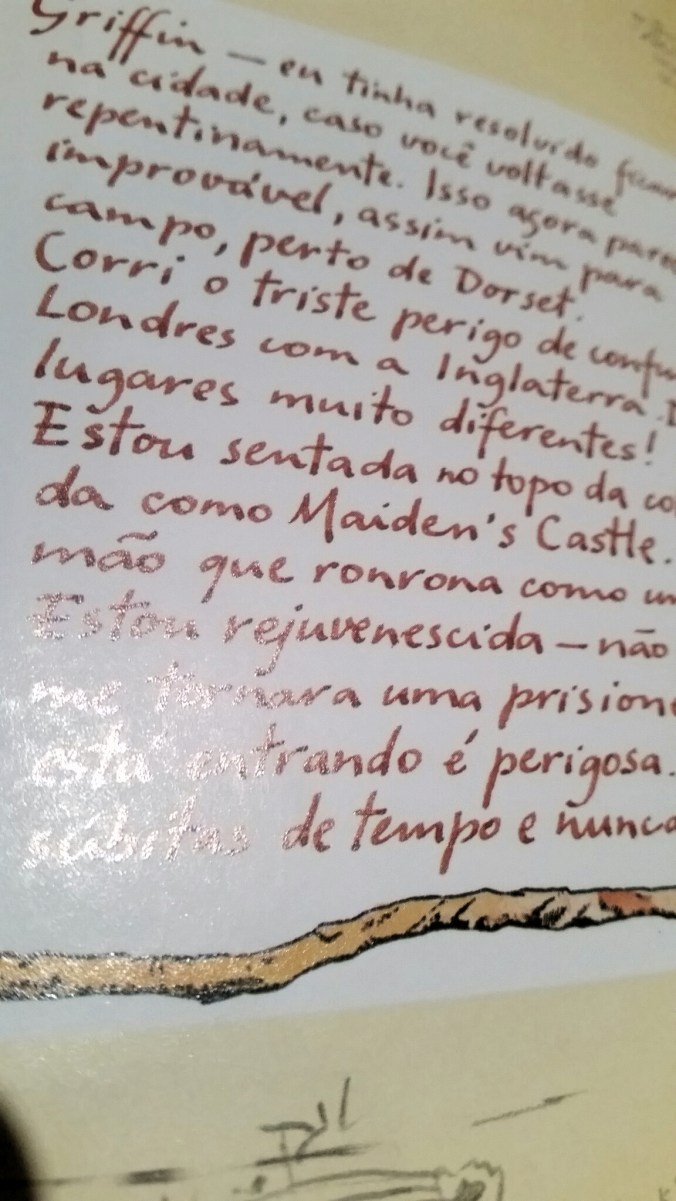 Griffin — eu tinha resolvido
na cidade, caso você voltasse
repentinamente. Isso agora
improvável, assim vim para
campo, perto de Dorset.
Corri o triste perigo de
Londres com a Inglaterra.
lugares muito diferentes!
Estou sentada no topo da
da como Maiden's Castle.
mão que ronrona como
Estou rejuvenescida — não
me tornara uma
está entrando é perigosa.
súbitas de tempo e nunca